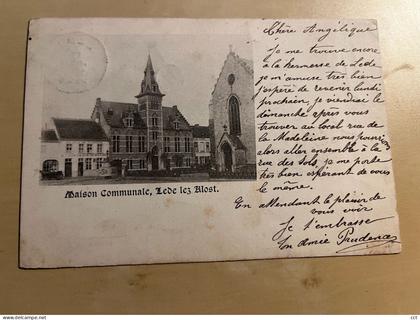 Chère Angélique
Je me trouve encore
à la kermesse de Lede
je m'amuse très bien
j'espère de revenir lundi
prochain, je viendrai le
dimanche après vous
trouver au local rue de
la Madeleine nous pouvons
alors aller ensemble à la
rue des sols, je me porte
très bien espérant de vous
le même.
Maison Communale, Lede lez Alost.
En attendant le plaisir de
vous voir
Je t'embrasse
En amie Prudence